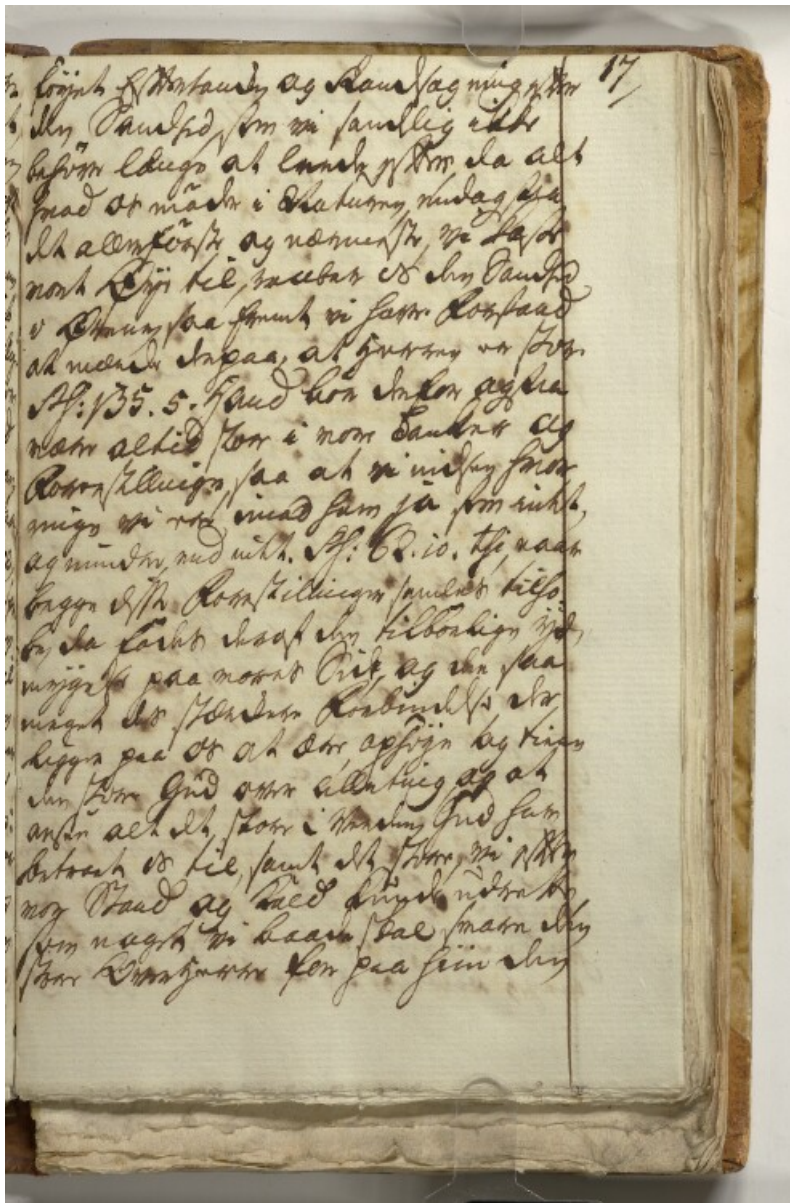 17
føyet Efftertanke og Randsagning efter
den Sandhed, som vi sandelig ikke
behøve længe at leede efter, da alt
hvad os møder i Naturen, endog fra
det allerførste og nærmeste, vi kaste
vort Øye til, raaber os den Sandhed
i Ørene, saa fremt vi have Forstand
at mærke derpaa, at Herren er stor
Ps: 135. 5. Hand bør derfor ogsaa
være altid stor i vore Tanker og
Forestillinger, saa at vi indsee hvor
ringe vi ere imod ham ja som intet,
og mindre end intet. Ps: 62. 10. thi naar
begge disse Forestillinger samles tilho-
be, da fødes deraf den tilbørlige yd-
mygelse paa vores Side, og den saa
meget des stærkere Forbindelse der
ligger paa os at ære, ophøye og tiene
den store Gud over alle ting og at
ansee alt det store i Verden Gud har
betroet os til, samt det store, vi efter
vor Stand og Kald kunde udrette
som noget vi baade skal svare den
store Overherre for paa hiin den